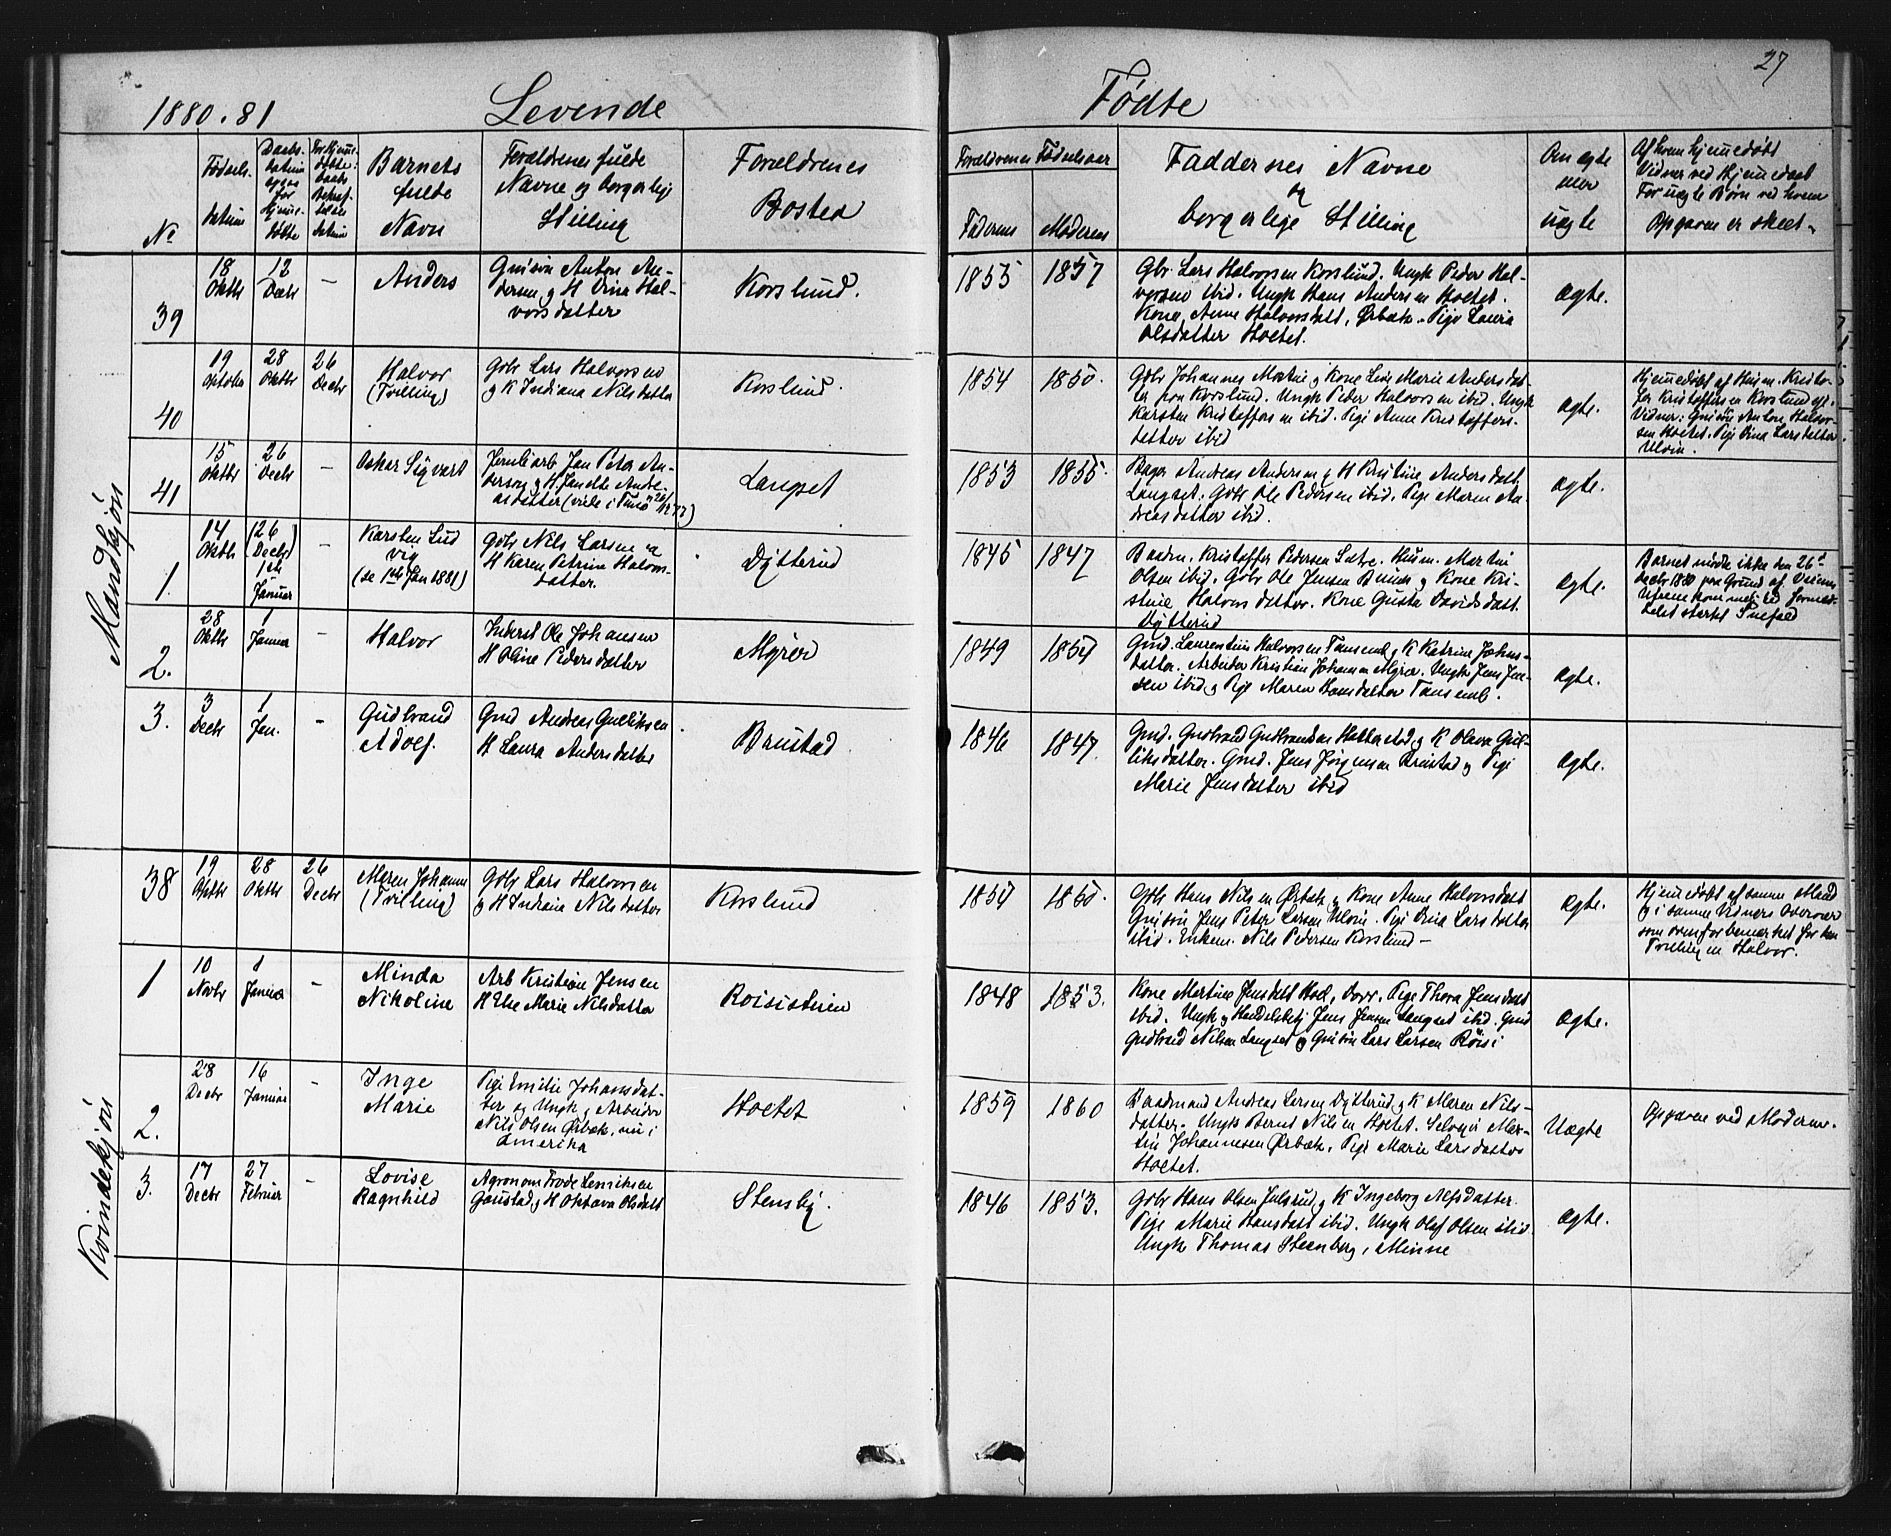 27
1880.81 Levende Fødte
No
Fødsels datum
Barnets fulde Navn
Forældrenes fulde Navne og borgerlige Stilling
Forældrenes Bosted
Forældrenes Fødselsaar
Faderens Moderens
Faddernes Navne og borgerlige Stilling
Om ægte eller uægte
Af hvem hjemmedøbt
Vidner ved Hjemmedaab
For uægte Børn ved hvem
Opgaven er skeet
Mandkjøn
39
18 Oktbr
12 Decbr
—
Anders
Anton Andersen og H Dina Halvorsdatter
Korslund.
1853 1857
Gbr. Lars Halvorsen Korslund. Ungk Peder Halvorsen ibid. Ungk Hans Andersen Hoelet.
Kone Anne Halvorsdatt, Ørbæk. Pige Laura
Olsdatter Hoelet.
ægte.
40
19 Oktober
28 Oktbr
26 Decbr
Halvor
(Tvilling)
Gbr Lars Halvorsen
og K Indiana Nilsdatter
Korslund.
1854 1850.
Johannes
og Kone
Marie Andersdatter fra Korslund. Ungk Peder Halvorsen ibid. Ungk
Karsten Kristoffersen ibid. Pige Anne Kristoffersdatter ibid
ægte.
Hjemmedøbt af Husm. Kristofer Kristoffersen Korslund
Vidner:
Anton
Pige Dina Larsdatter
Ulvin.
41
15 Oktbr
26 Decbr
—
Oskar Sigvart
Jernbarb Jan Peter Andersen og H. Janette Andreasdatter
Langset
1853 1855.
Andreas Andersen og H Kristine Andersdatt
Langset. Gbr Ole Pedersen ibid. Pige Maren Andreasdatter ibid.
ægte.
1.
14 Oktbr
(26 Decbr)
1st Januar
—
Karsten Ludvig
(se 1ste Jan 1881)
Gbr Nils Larsen og
H Karen Petrine Halvorsdatter.
Dytterud
1845 1847
Baadm. Kristoffer Pedersen Sætre. Husm. Martin
Olsen ibid. Gbr Ole Jensen
og Kone
Halvorsdatter. Kone Gusta Davidsdatt.
Dytterud
ægte.
Barnet mødte ikke den 26de
Decbr 1880 paa Grund af
stærkt Snefald
2.
28 Oktbr
1 Januar
—
Halvor
Inderst Ole Johansen
H Oline Pedersdatter
Myrer
1849 1854
Gmd. Laurentius Halvorsen Tansemb. og K Katrine Johansdatter. Arbeider Kristian Johansen Myrer. Ungk Jens Jensen ibid og Pige Maren Hansdatter Tansemb.
ægte.
3.
3 Decbr
1 Jan.
—
Gudbrand
Adolf.
Gmd Andreas Gulliksen
H Laura Andersdatter
Brustad
1846 1847.
Gmd. Gudbrand Gudbrandsen
og K Olava Gulliksdatter. Gmd. Jens Jørgensen Brustad og Pige
Marie Jensdatter ibid
ægte.
Kvindekjøn
38
19 Oktbr
28 Oktbr
26 Decbr
Maren Johanne
(Tvilling)
Gbr Lars Halvorsen
og H Indiana Nilsdatter
Korslund
1854 1850.
Gbr Hans Nilsen Ørbæk og Kone Anne Halvorsdatt
Jens Peter Larsen Ulvin. Pige Dina Larsdatter
ibid. Enkem. Nils Pedersen Korslund —
ægte.
Hjemmedøbt af samme Mand
og i samme Vidners Overvær
som ovenfor bemærket for den
Tvilling en Halvor.
1
10 Novbr
1 Januar
—
Minda
Nikoline
Arb Kristian Jensen
H Else Marie Nilsdatter
Roisisteien
1848 1853.
Kone Martine Jensdatt Hoel, Dorr. Pige Thora Jensdatt
ibid. Ungk og Handelsbetj Jens Jensen Langset ibid. Gmd
Gudbrand Nilsen Langset og
Lars Larsen Röisi
ægte.
2.
28 Decbr
16 Januar
—
Inge
Marie
Pige Emilie Johansdatter og Ungk og Arbeider
Nils Olsen Ørbæk, nu i
Amerika
Hoelet
1859 1860
Baadmand Andreas Larsen Dytterud og K Maren Nilsdatter. Ungk Bernt Nilsen Hoelet. Selveier Martin Johannesen Ørbæk. Pige Marie Larsdatter
Hoelet.
Uægte
Opgaven ved Moderen.
3.
17 Decbr
27 Februar
—
Lovise
Ragnhild
Agronom Frode Lemiksen
Gaustad og H Oktava Olsdatt
Stensby.
1846 1853.
Gbr Hans Olsen Julsrud og K Ingeborg Alfsdatter.
Pige Marie Hansdatt ibid. Ungk Olaf Olsen ibid
Ungk Thomas Steenberg, Minne
ægte.